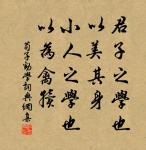 君子之學也
以美其身
小人之學也
以為禽犢
荀子勸學詞典網集